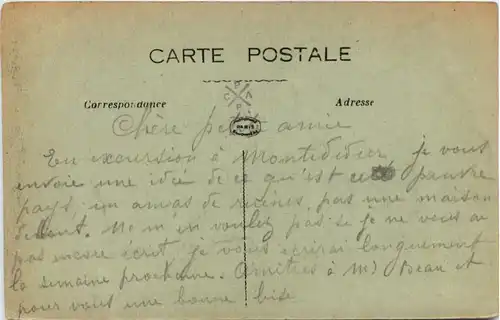 CARTE POSTALE
Correspondance
Adresse
C P A P
PARIS
Chère petite amie
En excursion à Montdidier, je vous
envoie une idée de ce qu'est ce pauvre
pays, un amas de ruines, pas une maison
debout. Ne m'en voulez pas si je ne vous ai
pas encore écrit, je vous écrirai longuement
la semaine prochaine. Amitiés à Beau et
pour vous une bonne bise